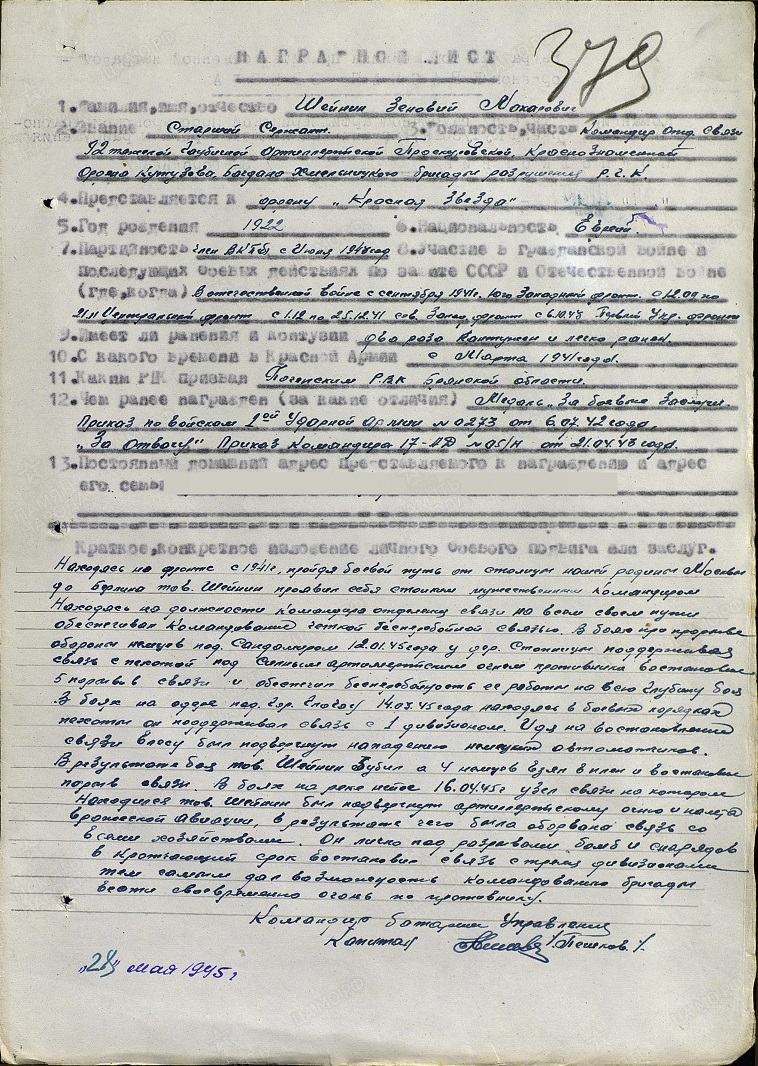 379
НАГРАДНОЙ ЛИСТ
1. Фамилия, имя, отчество Шейнин Зеновий Макарович
2. Звание Старший Сержант. 3. Должность, часть Командир отд. связи
92 тяжелой Гаубичной артиллерийской Проскуровской, Краснознаменной
Ордена Кутузова, Богдана Хмельницкого бригады разрушения Р.Г.К.
4. Представляется к ордену "Красная Звезда"
5. Год рождения 1922 6. Национальность Еврей.
7. Партийность член ВКПб с Июля 1944 год 8. Участие в Гражданской войне и
последующих боевых действиях по защите СССР и Отечественной войне
(где, когда) В отечественной войне с сентября 1941г. Юго Западный фронт. с 12.09 по
21.11 Центральный фронт с 1.12 по 25.12.41 сев. Запад. фронт с 6.10.43 Первый Укр. фронт
9. Имеет ли ранения и контузии два раза контужен и легко ранен.
10. С какого времени в Красной Армии с Марта 1941 года.
11. Каким РВК призван Погепским РВК Брянской области.
12. Чем ранее награжден (за какие отличия) Медаль "За боевые Заслуги"
Приказ по войском 1ой Ударной Армии №0273 от 6.07.42 года.
"За Отвагу" Приказ Командира 17-АД №05/н от 21.04.43 года.
13. Постоянный домашний адрес Представляемого к награждению и адрес
его семьи
Краткое, конкретное изложение личного боевого подвига или заслуг.
Находясь на фронте с 1941г, пройдя боевой путь от столицы нашей родины Москвы
до Берлина тов. Шейнин проявил себя стойким мужественным командиром
Находясь на должности командира отделения связи на всем своем пути
обеспечивал командование четкой бесперебойной связью. В бою при прорыве
обороны немцев под Сандомиром 12.01.45 года у дер. Стопницы поддерживая
связь с пехотой под сильным артиллерийским огнем противника востановил
5 порывов связи и обеспечил бесперебойность ее работы на всю глубину боя
В боях на одере под Гор. 14.03.45 года находясь в боевых порядках
пехоты он поддерживал связь с 1 дивизионом. Идя на востановление
связи в лесу был подвергнут нападению немецких автоматчиков.
В результате боя тов. Шейнин убил а 4 немцев взял в плен и востановил
порыв связи. В боях на реке нейсе 16.04.45г узел связи на котором
находился тов. Шейнин был подвергнут артиллерийскому огню и налета
вражеской авиации, в результате чего была оборвана связь со
всеми хозяйствами. Он лично под разрывами бомб и снарядов
в кротчающий срок востановил связь с тремя дивизионами
тем самым дал возможность командованию бригады
вести своевременно огонь по противнику.
Командир батареи Управления
Капитан /Пешков./
"28" мая 1945г